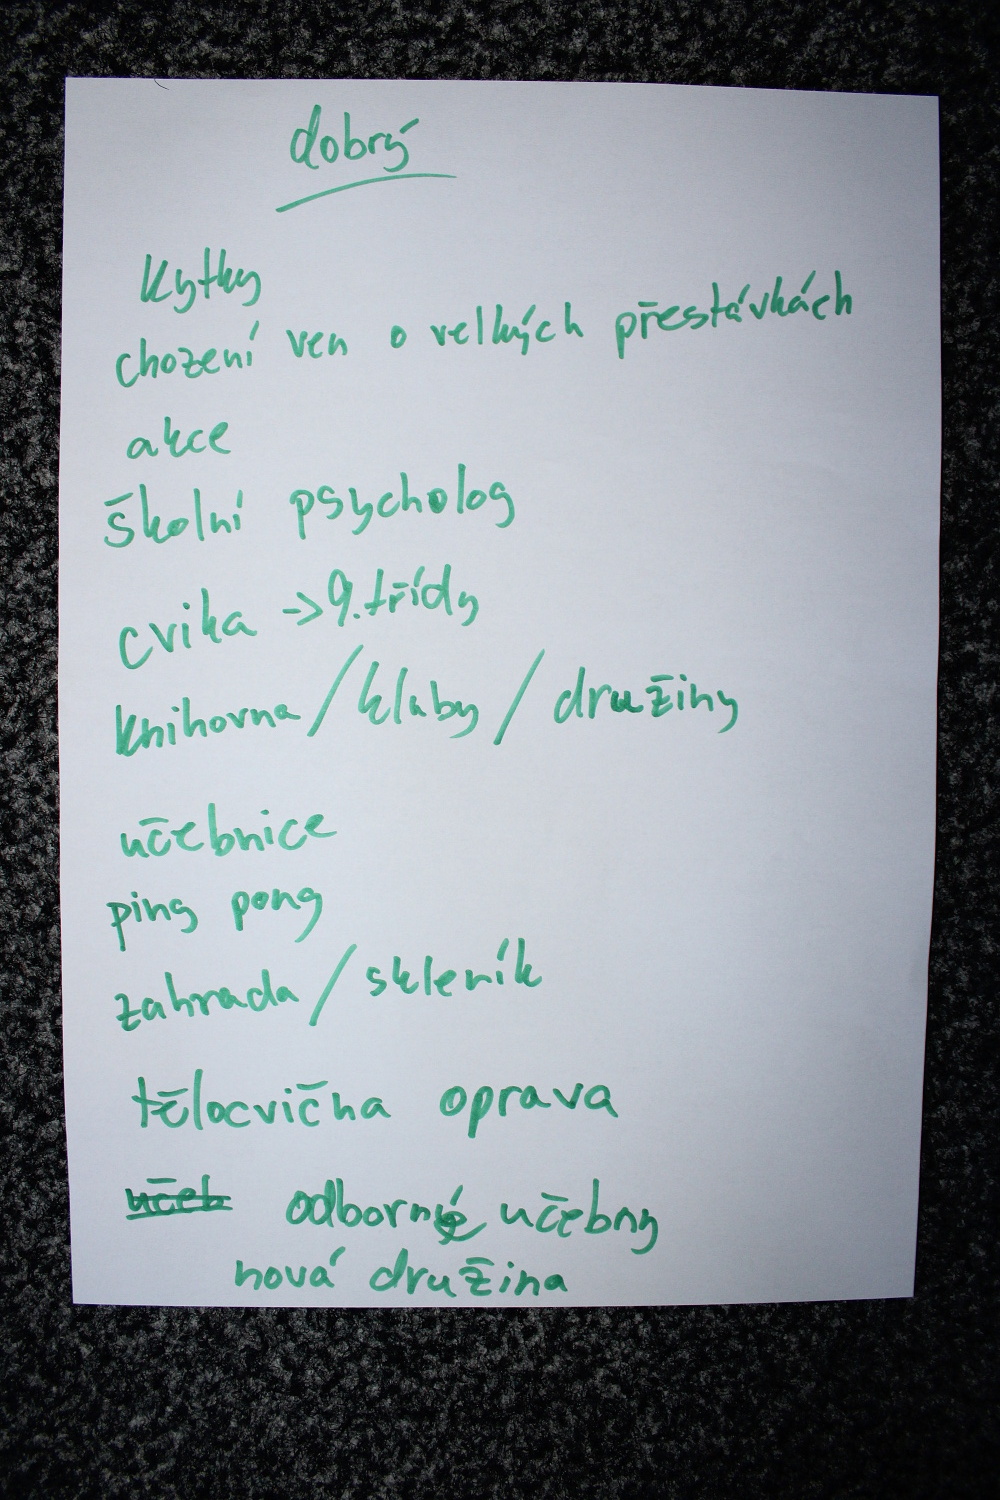 dobrý
kytky
chození ven o velkých přestávkách
akce
školní psycholog
cvika -> 9. třídy
knihovna / kluby / družiny
učebnice
ping pong
zahrada / skleník
tělocvična oprava
učeb odborné učebny
nová družina